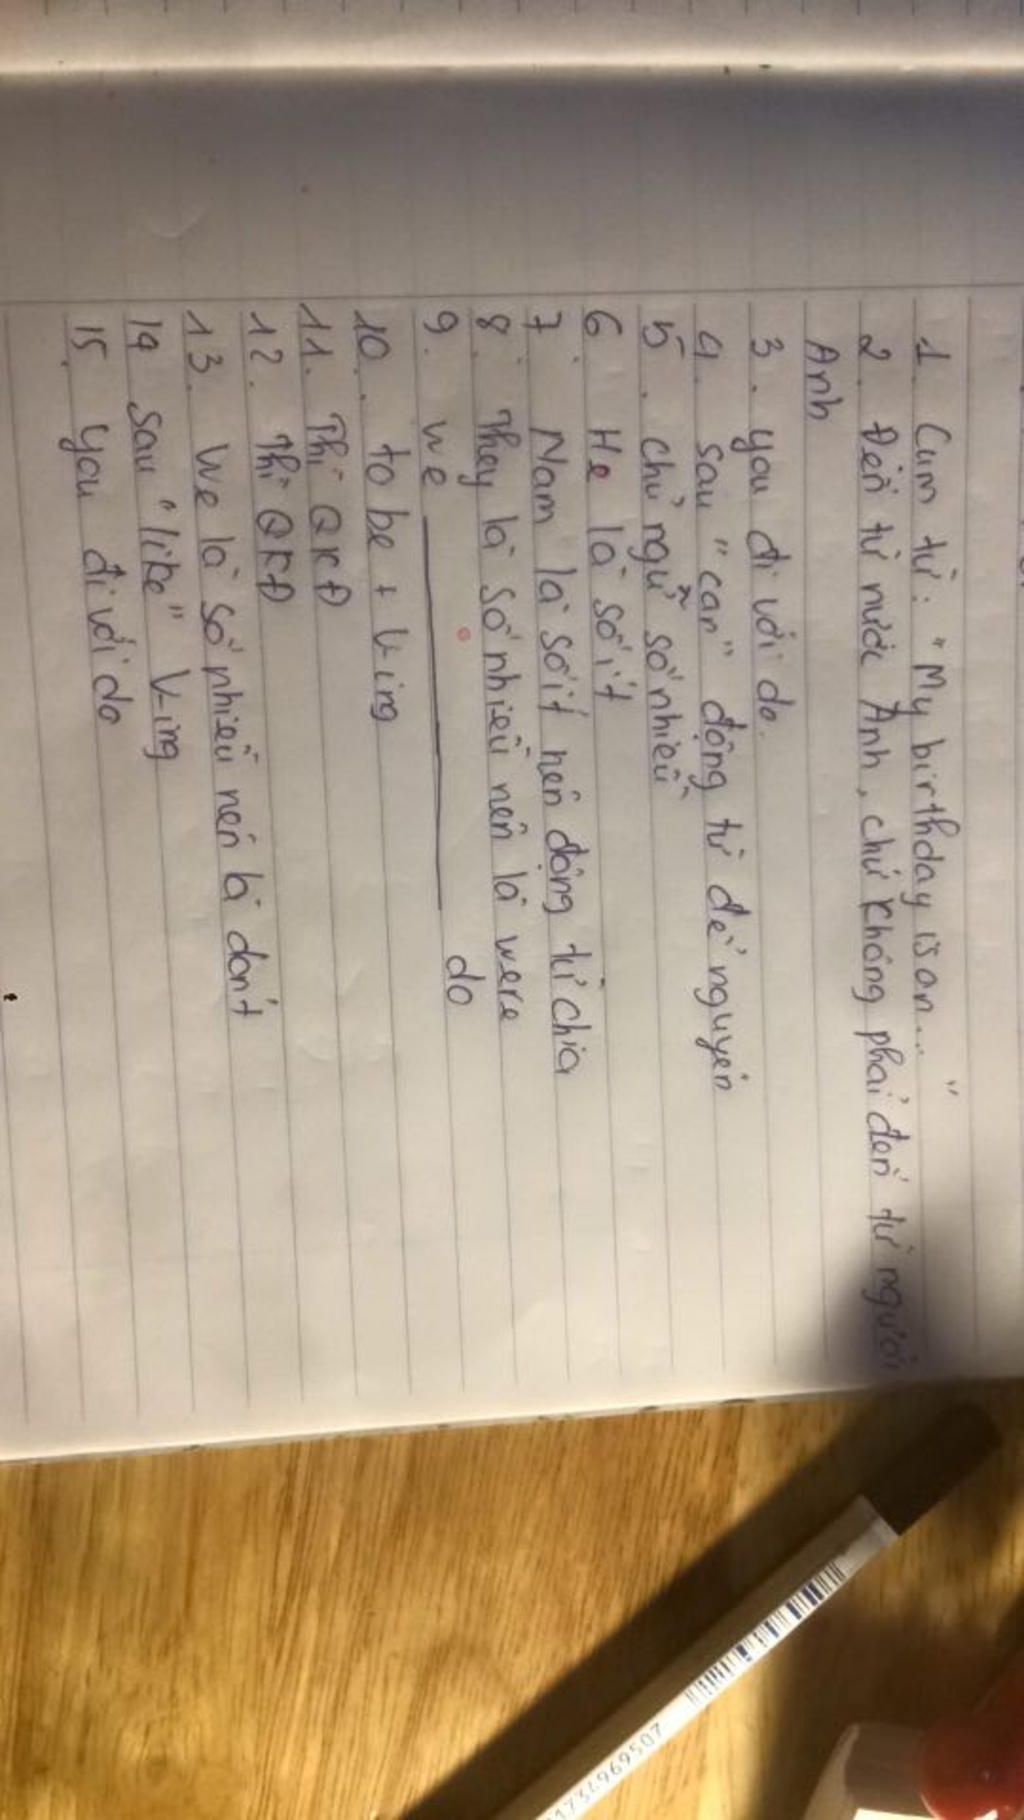 1. Cụm từ: "My birthday is on... "
2. Đến từ nước Anh, chứ không phải đến từ người
Anh
3. you đi với do.
4. sau "can" động từ để nguyên
5. chủ ngữ số nhiều
6. He là số ít
7. Nam là số ít nên động từ chia
8. They là số nhiều nên là were
9. we ________ do
10. to be + V-ing
11. Thì QKĐ
12. Thì QKĐ
13. We là số nhiều nên là don't
14 Sau "like" V-ing
15. you đi với do
1736969507